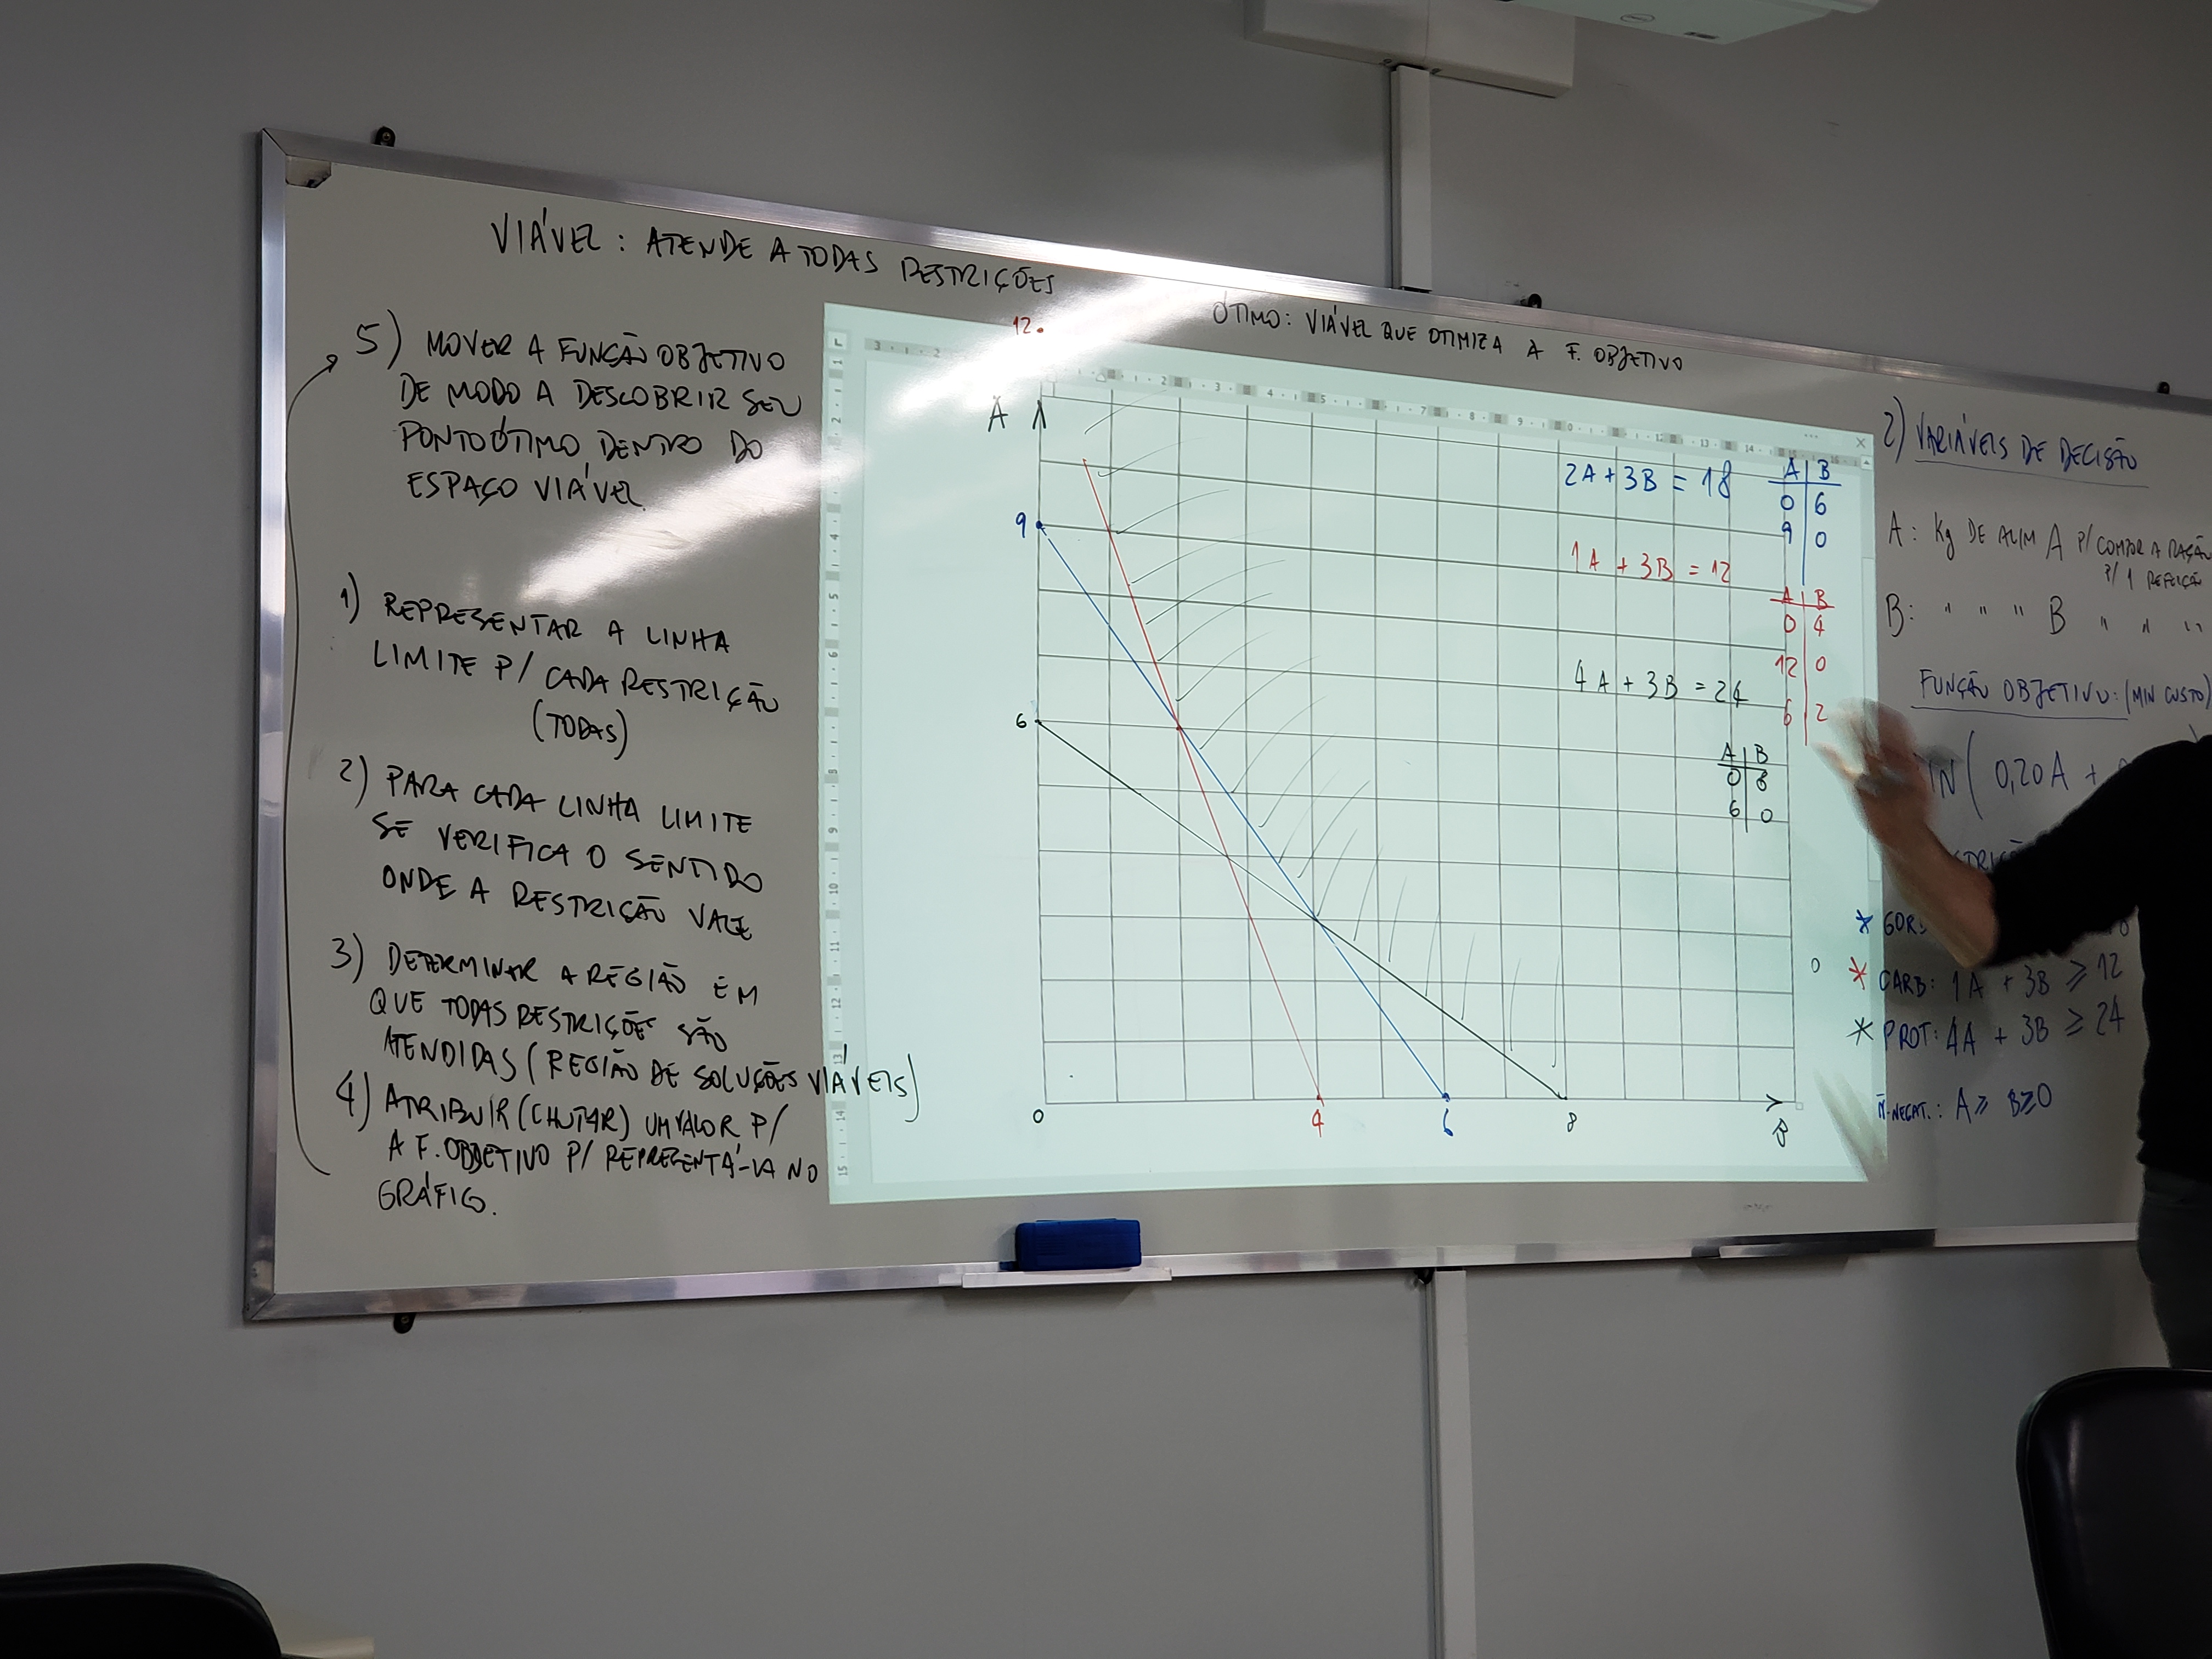 VIÁVEL: ATENDE A TODAS RESTRIÇÕES
ÓTIMO: VIÁVEL QUE OTIMIZA A F. OBJETIVO
5) MOVER A FUNÇÃO OBJETIVO
DE MODO A DESCOBRIR SEU
PONTO ÓTIMO DENTRO DO
ESPAÇO VIÁVEL.
1) REPRESENTAR A LINHA
LIMITE P/ CADA RESTRIÇÃO
(TODAS)
2) PARA CADA LINHA LIMITE
SE VERIFICA O SENTIDO
ONDE A RESTRIÇÃO VALE
3) DETERMINAR A REGIÃO EM
QUE TODAS RESTRIÇÕES SÃO
ATENDIDAS (REGIÃO DE SOLUÇÕES VIÁVEIS)
4) ATRIBUIR (CHUTAR) UM VALOR P/
A F. OBJETIVO P/ REPRESENTÁ-LA NO
GRÁFICO.
12
A
9
6
0
4
6
8
B
2A + 3B = 18
A B
0 6
9 0
1A + 3B = 12
A B
0 4
12 0
6 2
4A + 3B = 24
A B
0 8
6 0
2) VARIÁVEIS DE DECISÃO
A: Kg DE ALIM A P/ COMPOR A RAÇÃO
P/ 1 REFEIÇÃO
B: " " " B " " "
FUNÇÃO OBJETIVO: (MIN CUSTO)
0,20A +
* CARB: 1A + 3B ≥ 12
* PROT: 4A + 3B ≥ 24
Ñ-NEGAT.: A ≥ B≥0